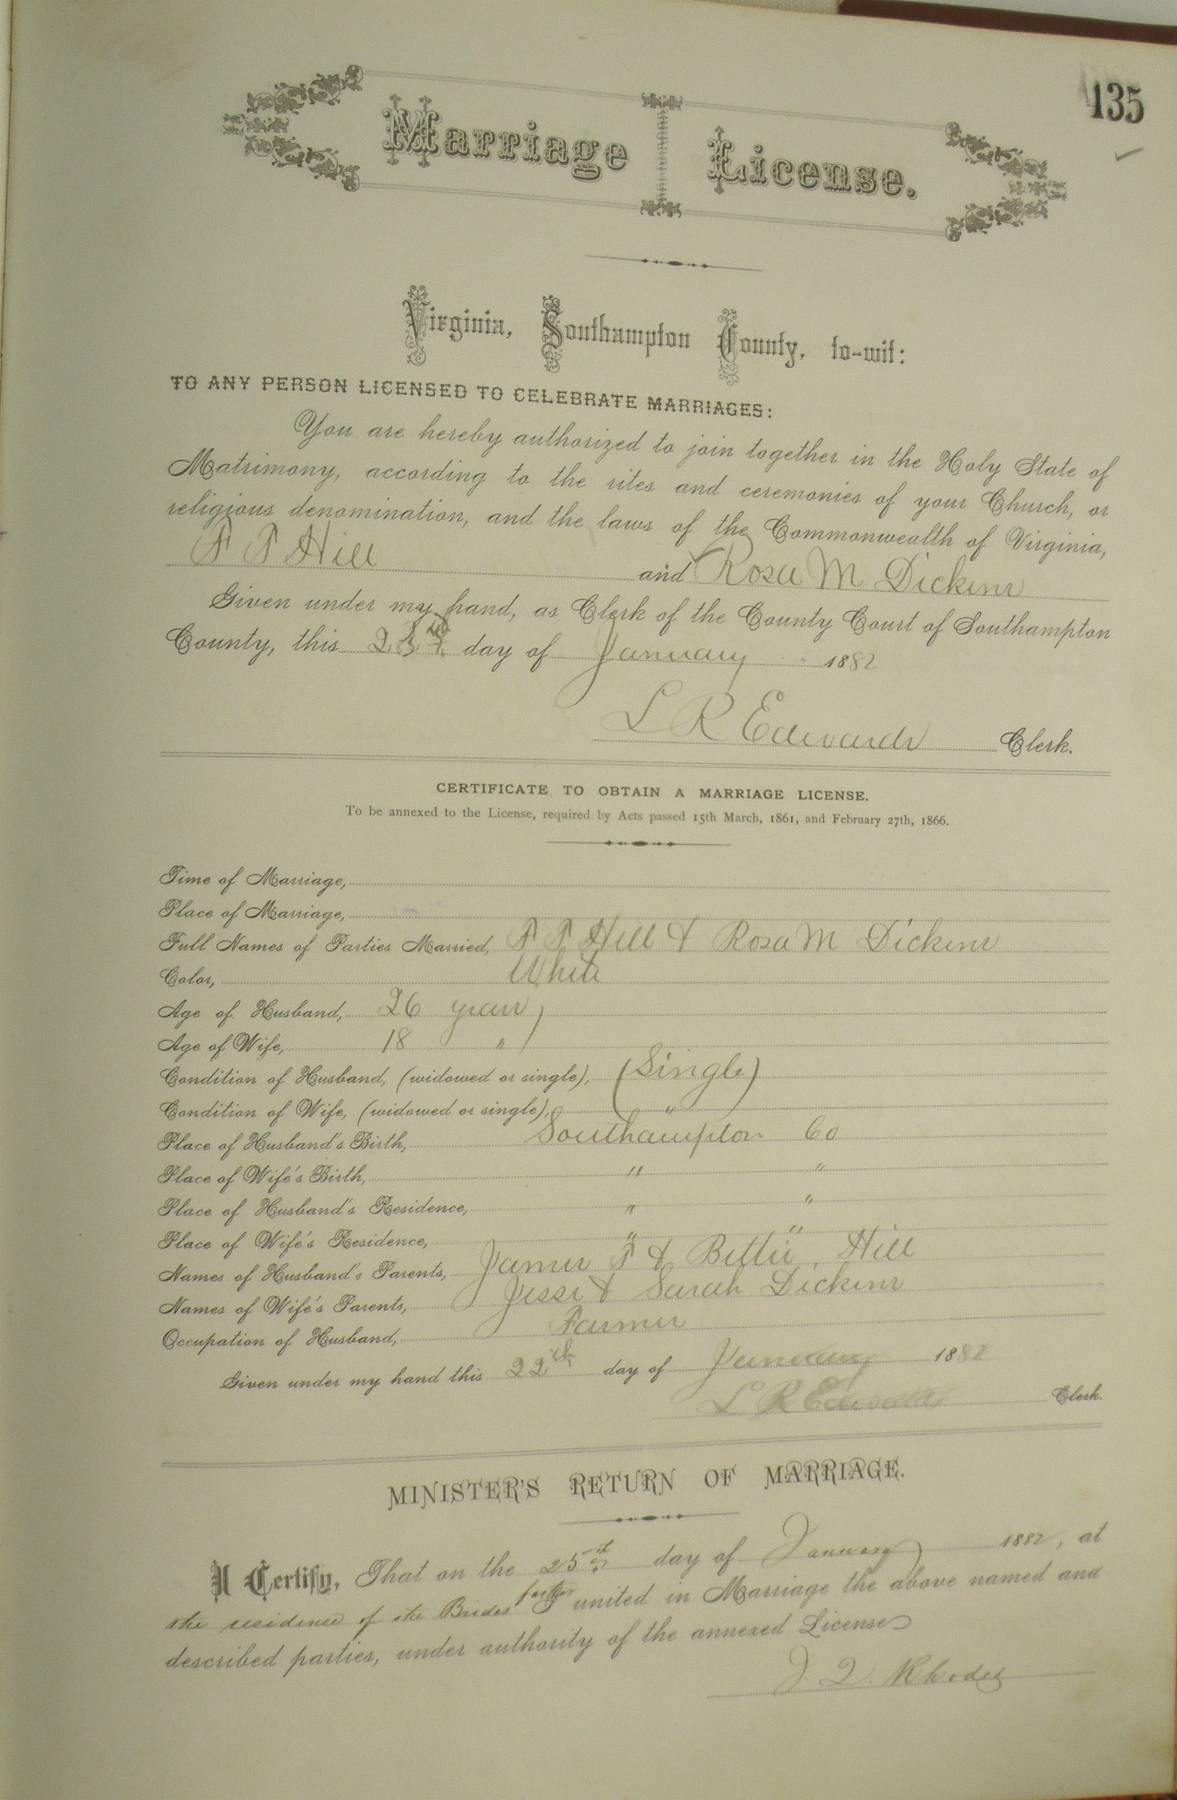 135
Marriage License.
Virginia, Southampton County, to-wit:
TO ANY PERSON LICENSED TO CELEBRATE MARRIAGES:
You are hereby authorized to join together in the Holy State of
Matrimony, according to the rites and ceremonies of your Church, or
religious denomination, and the laws of the Commonwealth of Virginia,
Hill and Rosa M Dickens
Given under my hand, as Clerk of the County Court of Southampton
County, this day of January 1882
L R Edwards Clerk.
CERTIFICATE TO OBTAIN A MARRIAGE LICENSE.
To be annexed to the License, required by Acts passed 15th March, 1861, and February 27th, 1866.
Time of Marriage,
Place of Marriage,
Full Names of Parties Married, Hill & Rosa M Dickens
Color, White
Age of Husband, 26 years
Age of Wife, 18 "
Condition of Husband, (widowed or single), (Single)
Condition of Wife, (widowed or single), "
Place of Husband's Birth, Southampton Co
Place of Wife's Birth, " "
Place of Husband's Residence, " "
Place of Wife's Residence, " "
Names of Husband's Parents, James T & Bettie Hill
Names of Wife's Parents, Jesse & Sarah Dickens
Occupation of Husband, Farmer
Given under my hand this 22th day of January 1882
L R Edwards Clerk.
MINISTER'S RETURN OF MARRIAGE.
I Certify, That on the 25th day of January 1882, at
the residence of the Brides father I united in Marriage the above named and
described parties, under authority of the annexed License
J. Q. Rhodes